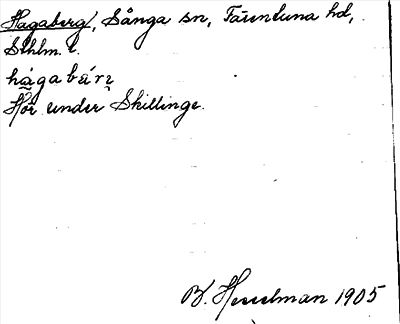 Hagaberg, Sånga sn, Färentuna hd,
Sthlm. l.
hågabári
Hör under Skillinge.
B. Hesselman 1905